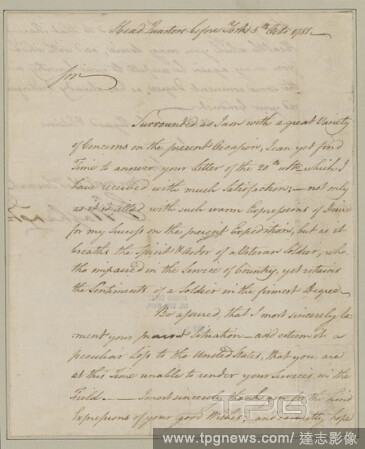 Head Quarters before York 5th Octr 1781.
Sir
Surrounded as I am with a great Variety
of Concerns on the present Occasion, I can yet find
Time to answer your Letter of the 20th ulto which I
have received with much Satisfaction; — not only
as it is filled with such warm Expressions of Desire
for my Success on the present Expedition, but as it
breaths the Spirit & Ardor of a Veteran Soldier, who
tho impaired in the Service of Country, yet retains
the Sentiments of a Soldier in the firmest Degree.
Be assured, that I most sincerely la-
ment your present Situation — and esteem it a
peculiar Loss to the United States, that you are
at this Time unable to render your Services in the
Field. — I most sincerely thank you for the kind
Expressions of your good Wishes, and earnestly hope
TPG
www.tpgnews.com / 達志影像